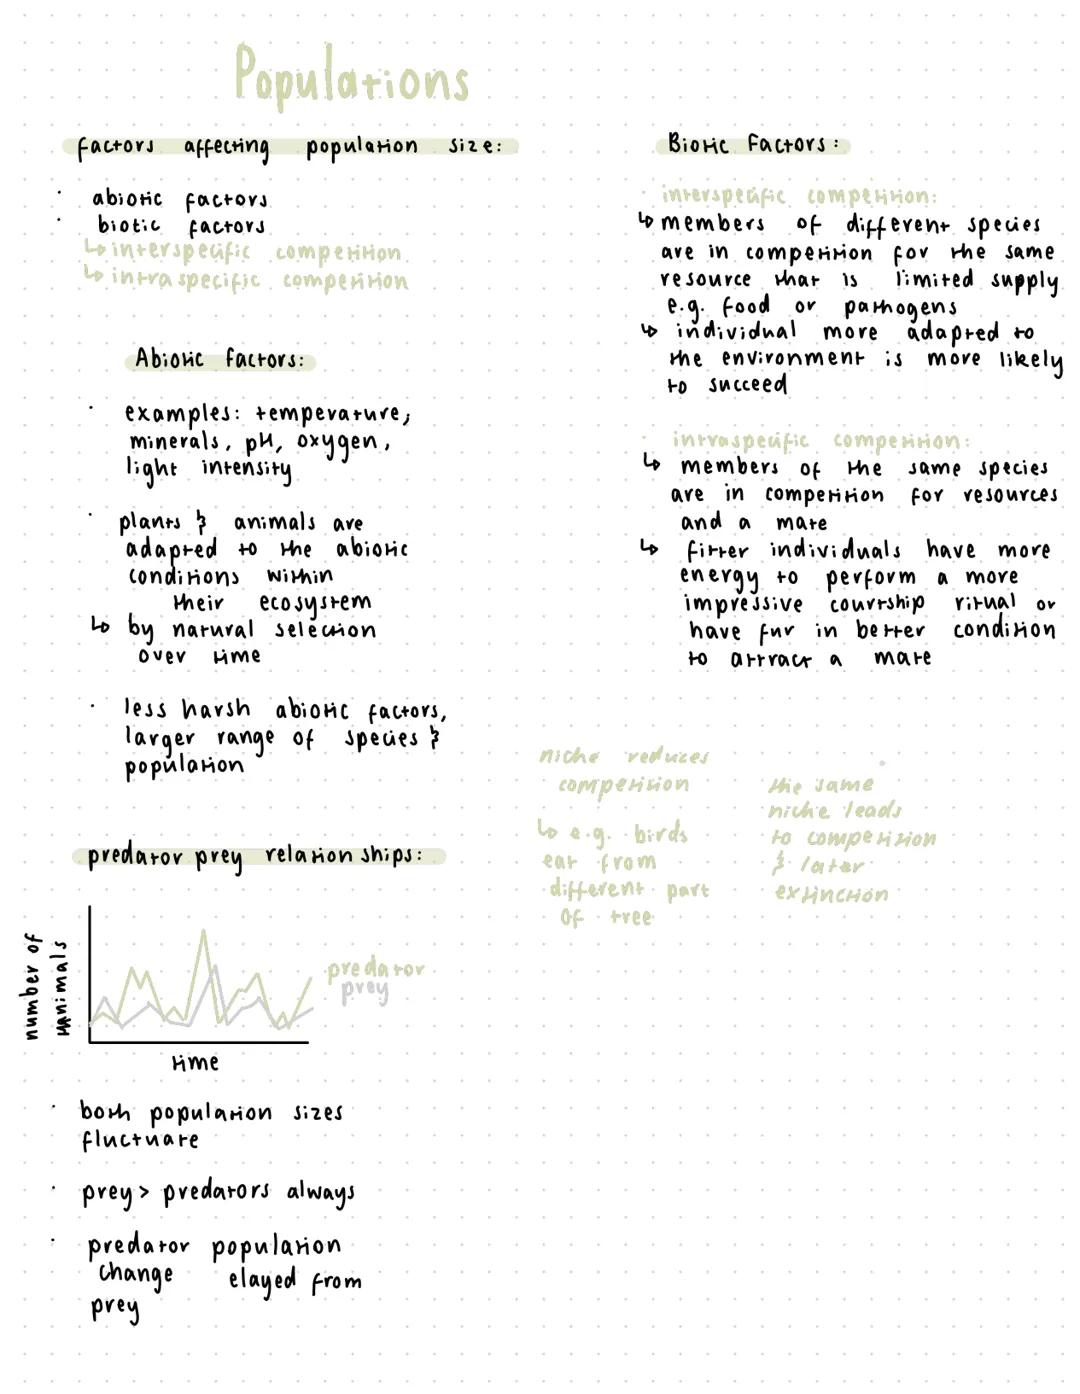 Populations
factors affecting population size:
· abiotic factors
· biotic factors
↳ interspecific competition
↳ intraspecific competition
Abiotic factors:
· examples: temperature,
minerals, pH, oxygen,
light intensity
· plants & animals are
adapted to the abiotic
conditions within
their ecosystem
↳ by natural selection
over time
· less harsh abiotic factors,
larger range of species &
population
predator prey relationships:
number of
animals
predator
prey
time
· both population sizes
fluctuate
· prey > predators always
· predator population
change elayed from
prey
Biotic Factors:
· interspecific competition:
↳ members of different species
are in competition for the same
resource that is limited supply
e.g. food or pathogens
↳ individual more adapted to
the environment is more likely
to succeed
· intraspecific competition:
↳ members of the same species
are in competition for resources
and a mate
↳ fitter individuals have more
energy to perform a more
impressive courtship ritual or
have fur in better condition
to attract a mate
niche reduces
competition
↳ e.g. birds
eat from
different part
of tree
the same
niche leads
to competition
& later
extinction